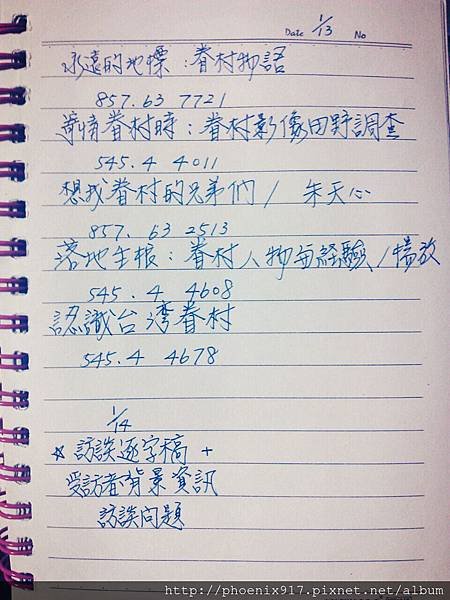 Date 1/13 No
永遠的地標:眷村物語
857.63 7721
寄情眷村時:眷村影像田野調查
545.4 4011
想我眷村的兄弟們/ 朱天心
857.63 2513
落地生根:眷村人物與經驗/楊放
545.4 4608
認識台灣眷村
545.4 4678
1/14
☆訪談逐字稿 +
受訪者背景資訊
訪談問題
http://phoenix917.pixnet.net/album